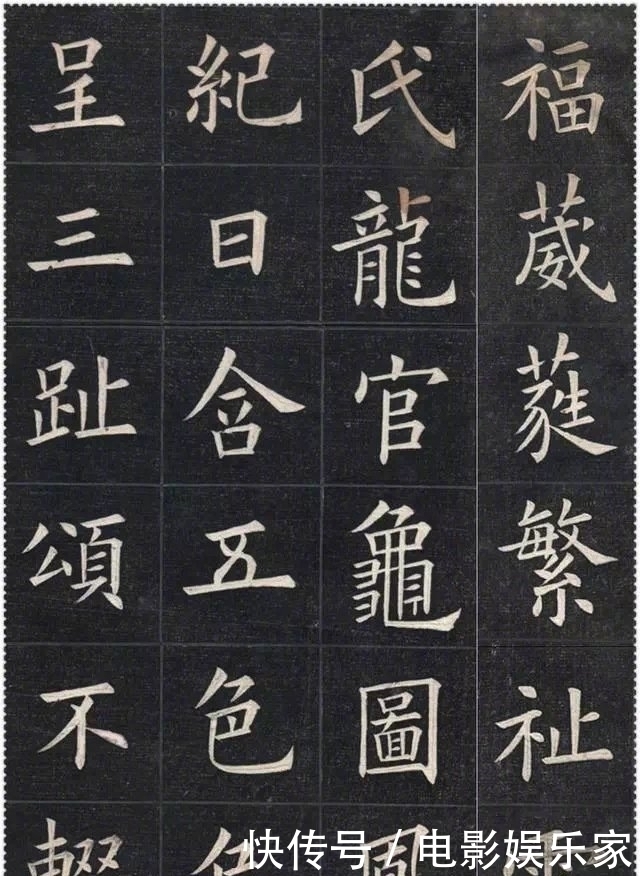 福葳蕤繁祉
氏龍官龜圖
紀日含五色
呈三趾頌不輟
快传号 / 电影娱乐家